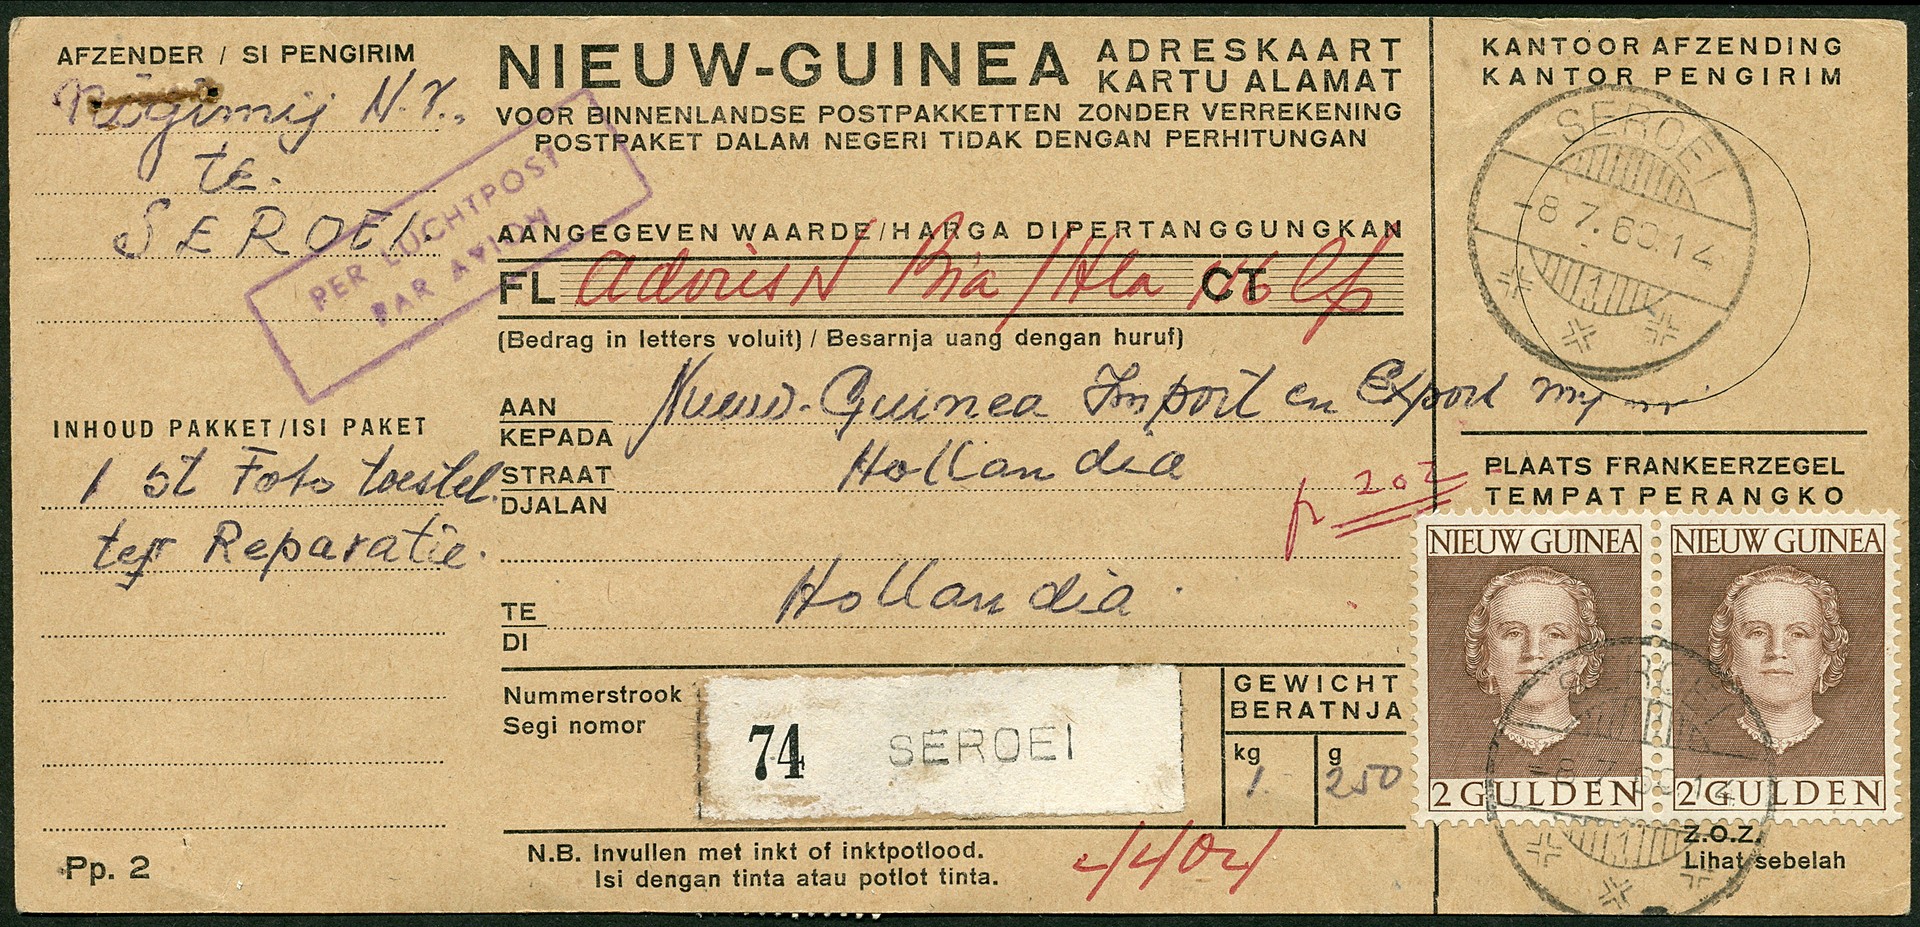 AFZENDER / SI PENGIRIM
N.V.
te.
SEROEI.
PER LUCHTPOST
PAR AVION
INHOUD PAKKET/ISI PAKET
1 st Foto toestel
ter Reparatie.
Pp. 2
NIEUW-GUINEA
ADRESKAART
KARTU ALAMAT
VOOR BINNENLANDSE POSTPAKKETTEN ZONDER VERREKENING
POSTPAKET DALAM NEGERI TIDAK DENGAN PERHITUNGAN
AANGEGEVEN WAARDE/HARGA DIPERTANGGUNGKAN
FL CT
(Bedrag in letters voluit) / Besarnja uang dengan huruf)
AAN Nieuw-Guinea Import en Export mij
KEPADA
STRAAT Hollandia
DJALAN
TE Hollandia.
DI
Nummerstrook
Segi nomor
74 SEROEI
GEWICHT
BERATNJA
kg g
1. 250
N.B. Invullen met inkt of inktpotlood.
Isi dengan tinta atau potlot tinta.
KANTOOR AFZENDING
KANTOR PENGIRIM
SEROEI
-8.7.60.14
1
PLAATS FRANKEERZEGEL
TEMPAT PERANGKO
NIEUW GUINEA
2 GULDEN
NIEUW GUINEA
2 GULDEN
SEROEI
-8.7.60.14
1
Z.O.Z.
Lihat sebelah